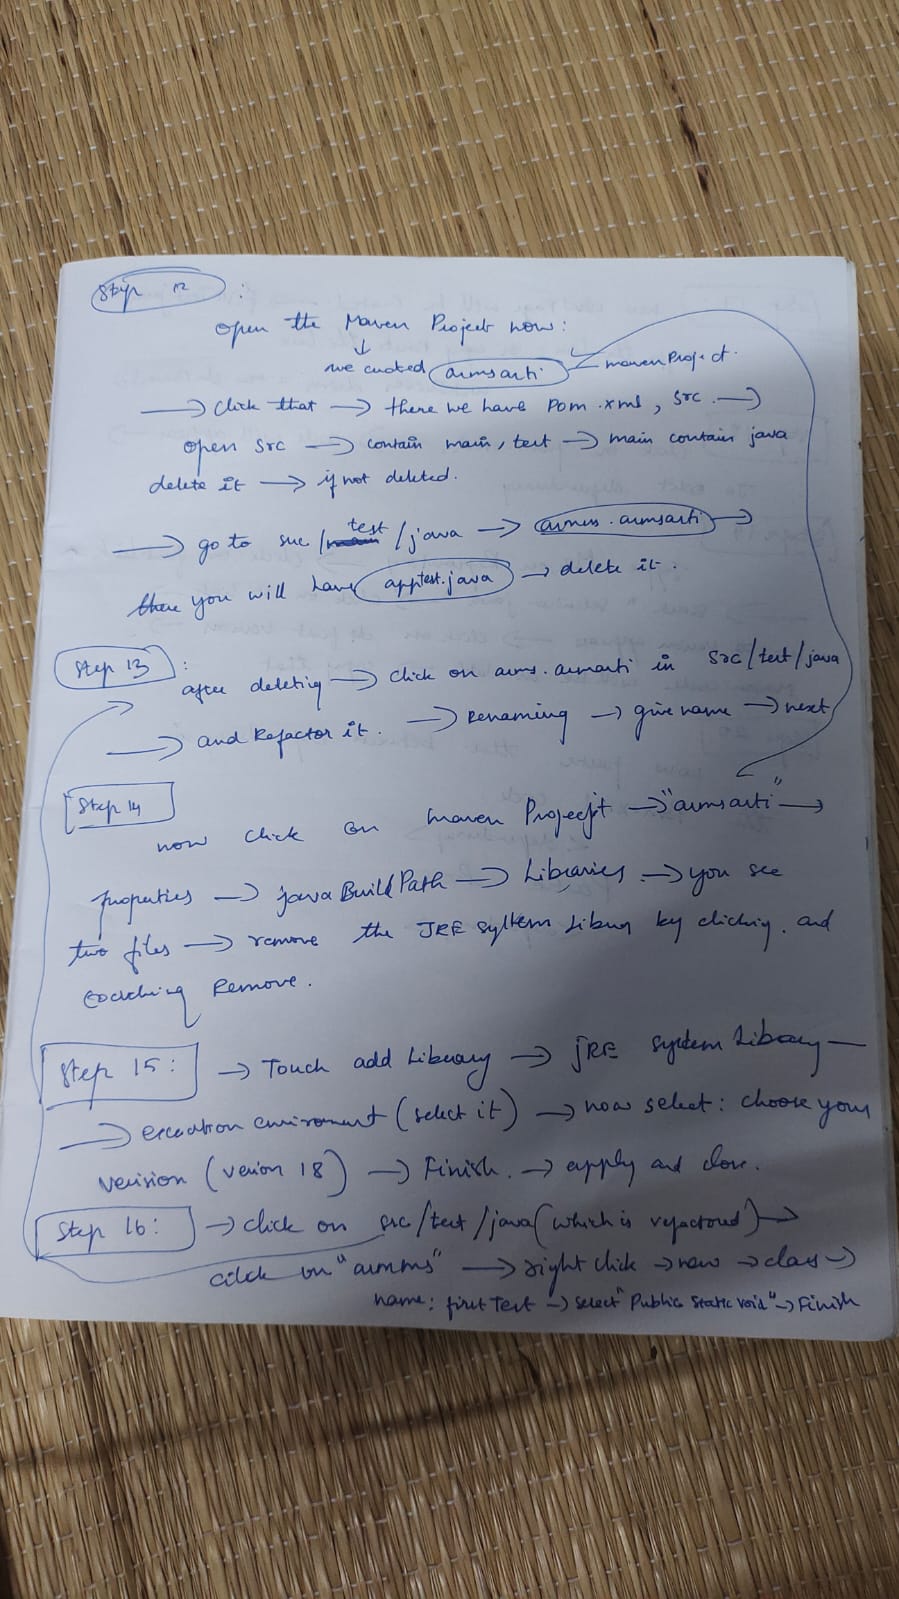 Step 12 :
open the Maven Project now:
↓
we cuoted armsarti ← mavenProject.
→ click that → there we have Pom.xml, src. →
open src → contain main, test → main contain java
delete it → if not deleted.
→ go to src/test/java → →
there you will have apptest.java → delete it.
Step 13 :
after deleting → click on in src/test/java
→ and Refactor it. → Renaming → give name → next
Step 14
now click on maven → "armsarti" →
properties → java Build Path → Libraries → you see
two files → remove the JRE system by clicking, and
Remove.
Step 15: → Touch add Library → jRE system Library —
→ (select it) → now select: choose your
(version 18) → Finish. → apply and close.
Step 16: → click on src/test/java (which is refactored) →
click on "armms" → right click → new → class →
name: first Test → select "Public Static void" → Finish